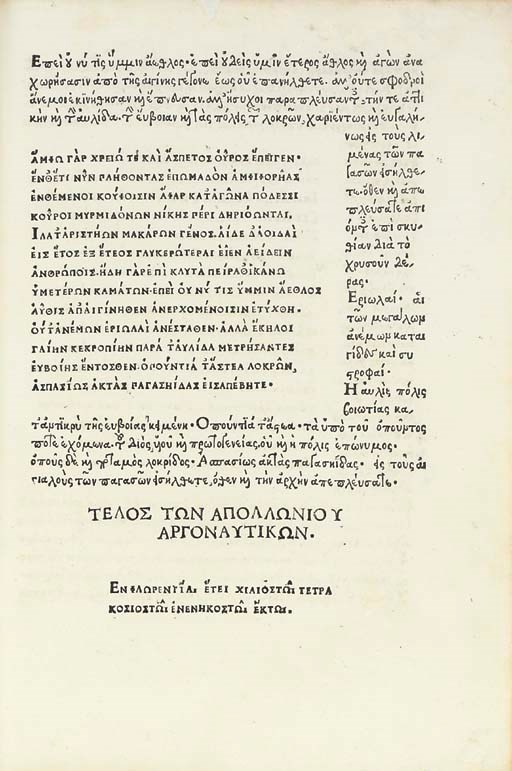 Ἐπεὶ οὔ νύ τις ὔμμιν ἄεθλος· ἐπεὶ οὐδεὶς ὑμῖν ἕτερος ἆθλος καὶ ἀγὼν ἀνα
χωρήσασιν ἀπὸ τῆς αἰγίνης γέγονε ἕως οὗ ἐπανήλθετε. ἀλλ' οὔτε σφοδροὶ
ἄνεμοι ἐκινήθησαν καὶ ἔπνευσαν. ἀλλ' ἥσυχοι παραπλεύσαντες, τήν τε ἀττι
κὴν καὶ τὴν αὐλίδα. τὴν εὔβοιαν καὶ τὰς πόλεις τῶν λοκρῶν, χαριέντως καὶ εὐγαλή-
ΑΜΦΩ ΓΑΡ ΧΡΕΙΩ ΤΕ ΚΑΙ ΑΣΠΕΤΟΣ ΟΥΡΟΣ ΕΠΕΙΓΕΝ·
ΕΝΘΕΤΙ ΝΥΝ ΠΛΗΘΟΝΤΑΣ ΕΠΩΜΑΔΟΝ ΑΜΦΙΦΟΡΗΑΣ
ΕΝΘΕΜΕΝΟΙ ΚΟΥΦΟΙΣΙΝ ΑΦΑΡ ΚΑΤΑΓΩΝΑ ΠΟΔΕΣΣΙ
ΚΟΥΡΟΙ ΜΥΡΜΙΔΟΝΩΝ ΝΙΚΗΣ ΠΕΡΙ ΔΗΡΙΟΩΝΤΑΙ,
ΙΛΑΤ' ΑΡΙΣΤΗΩΝ ΜΑΚΑΡΩΝ ΓΕΝΟΣ. ΑΙΔΕ Δ' ΑΟΙΔΑΙ
ΕΙΣ ΕΤΟΣ ΕΞ ΕΤΕΟΣ ΓΛΥΚΕΡΩΤΕΡΑΙ ΕΙΕΝ ΑΕΙΔΕΙΝ
ΑΝΘΡΩΠΟΙΣ. ΗΔΗ ΓΑΡ ΕΠΙ ΚΛΥΤΑ ΠΕΙΡΑΘ' ΙΚΑΝΩ
ΥΜΕΤΕΡΩΝ ΚΑΜΑΤΩΝ· ΕΠΕΙ ΟΥ ΝΥ ΤΙΣ ΥΜΜΙΝ ΑΕΘΛΟΣ
ΑΥΘΙΣ ΑΠ' ΑΙΓΙΝΗΘΕΝ ΑΝΕΡΧΟΜΕΝΟΙΣΙΝ ΕΤΥΧΘΗ.
ΟΥΤ' ΑΝΕΜΩΝ ΕΡΙΩΛΑΙ ΑΝΕΣΤΑΘΕΝ. ΑΛΛΑ ΕΚΗΛΟΙ
ΓΑΙΗΝ ΚΕΚΡΟΠΙΗΝ ΠΑΡΑ Τ' ΑΥΛΙΔΑ ΜΕΤΡΗΣΑΝΤΕΣ
ΕΥΒΟΙΗΣ ΕΝΤΟΣΘΕΝ. ΟΠΟΥΝΤΙΑ Τ' ΑΣΤΕΑ ΛΟΚΡΩΝ,
ΑΣΠΑΣΙΩΣ ΑΚΤΑΣ ΠΑΓΑΣΗΙΔΑΣ ΕΙΣΑΠΕΒΗΤΕ·
νως εἰς τοὺς λι-
μένας τῶν πα
γασῶν εἰσήλθε-
τε. ὅθεν καὶ ἀπε
πλεύσατε
ἐπὶ σκυ-
θίαν διὰ τὸ
χρυσοῦν δέ-
ρας·
Ἐριωλαί· αἱ
τῶν μεγάλων
ἀνέμων καται
γίδες καὶ συ
στροφαί·
Ἡ αὐλὶς πόλις
βοιωτίας κα-
τ' ἀντικρὺ τῆς εὐβοίας κειμένη· Ὀπούντιά τ' ἄστεα· τὰ ὑπὸ τοῦ ὀποῦντος
ποτε ἐχόμενα· τοῦ Διὸς υἱοῦ καὶ πρωτογενείας, οὗ καὶ ἡ πόλις ἐπώνυμος.
ὀποῦς δὲ καὶ ποταμὸς λοκρίδος· Ἀσπασίως ἀκτὰς παγασηίδας· εἰς τοὺς αἰ
γιαλοὺς τῶν παγασῶν εἰσήλθετε, ὅθεν καὶ τὴν ἀρχὴν ἀπεπλεύσατε.
ΤΕΛΟΣ ΤΩΝ ΑΠΟΛΛΩΝΙΟΥ
ΑΡΓΟΝΑΥΤΙΚΩΝ.
ΕΝ ΦΛΩΡΕΝΤΙΑΙ ΕΤΕΙ ΧΙΛΙΟΣΤΩΙ ΤΕΤΡΑ
ΚΟΣΙΟΣΤΩΙ ΕΝΕΝΗΚΟΣΤΩΙ ΕΚΤΩΙ.